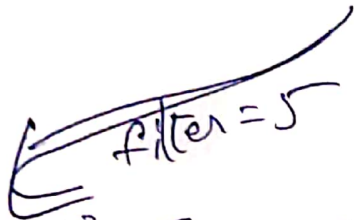 filter = 5